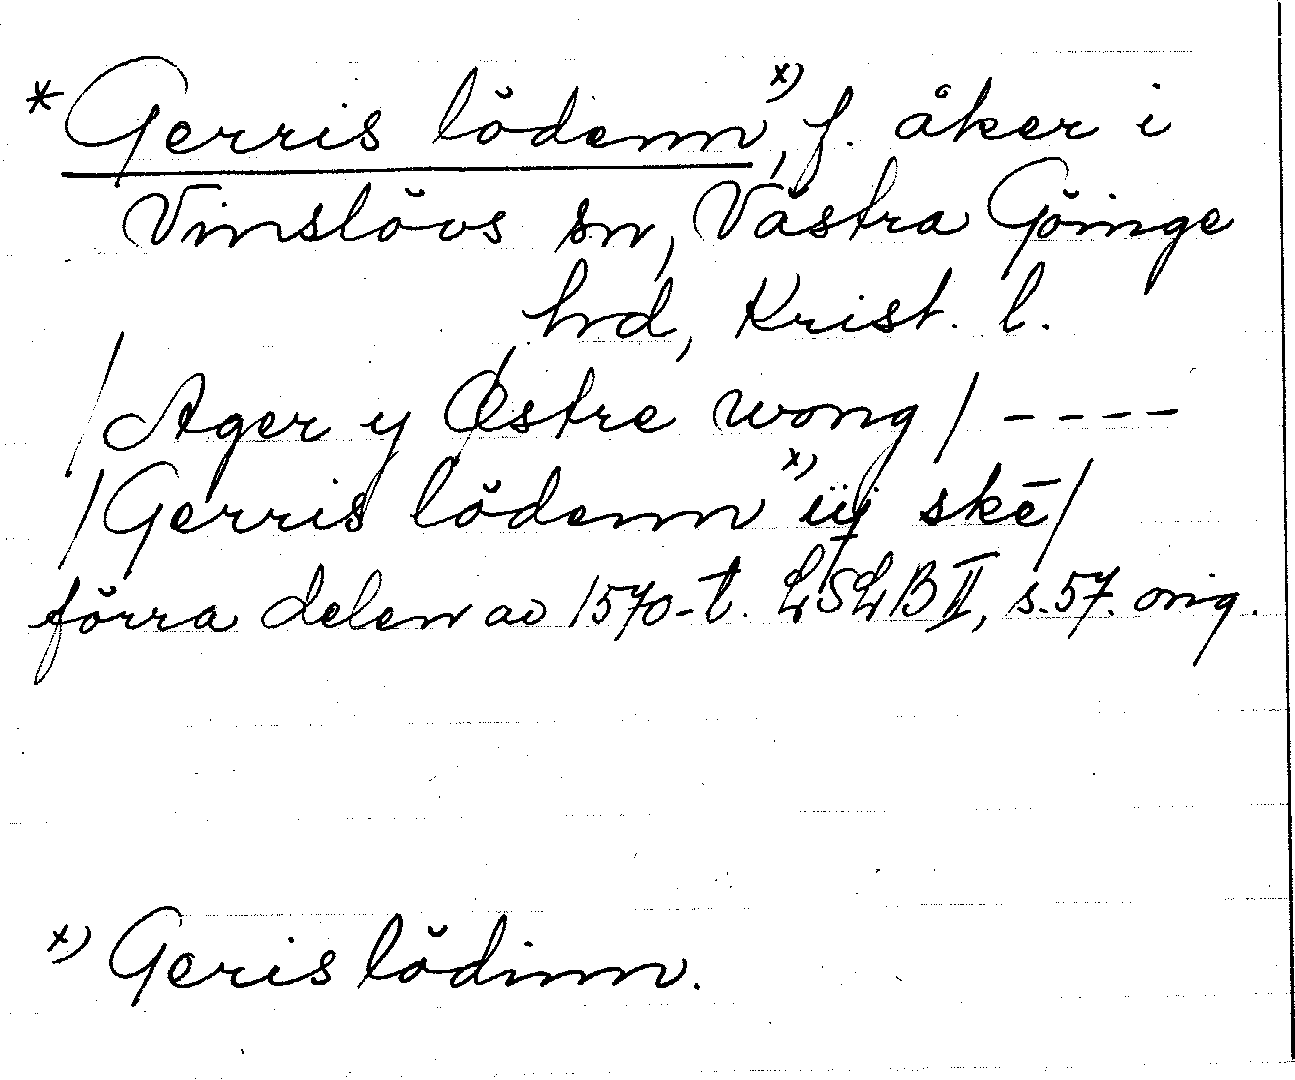 * Gerris lödenn x), f. åker i
Vinslövs sn, Västra Göinge
hrd, Krist. l.
/Ager y Østre wong/ - - - -
/Gerris lödenn x) iij skē/
förra delen av 1570-t. LSLB II, s. 57. orig.
x) Geris lödinn.